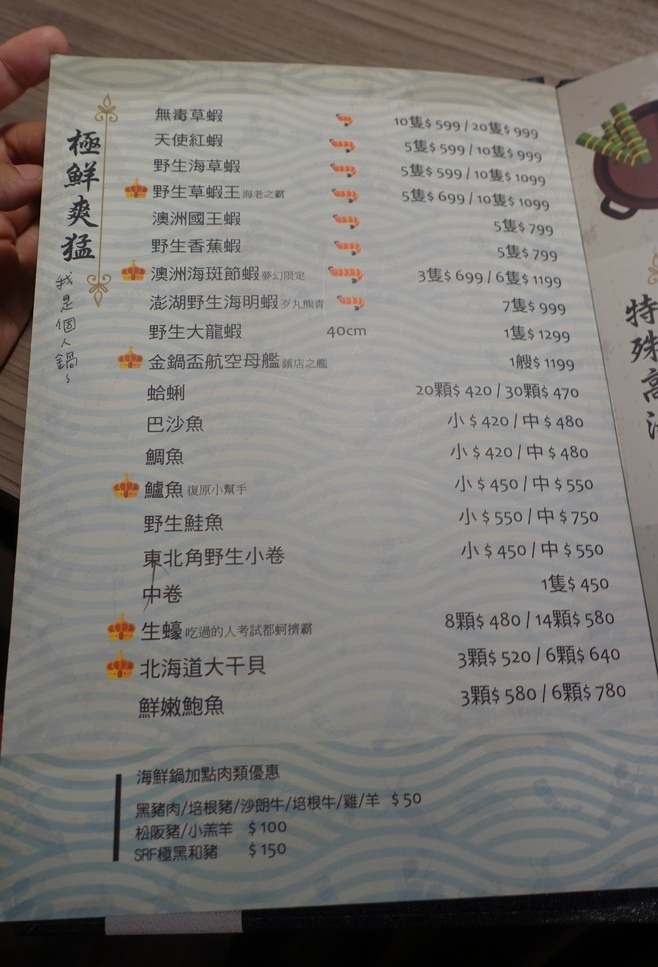 極鮮爽猛
我是個人鍋~
無毒草蝦 10隻$ 599 / 20隻$ 999
天使紅蝦 5隻$ 599 / 10隻$ 999
野生海草蝦 5隻$ 599 / 10隻$ 1099
野生草蝦王 海老之霸 5隻$ 699 / 10隻$ 1099
澳洲國王蝦 5隻$ 799
野生香蕉蝦 5隻$ 799
澳洲海斑節蝦 夢幻限定 3隻$ 699 / 6隻$ 1199
澎湖野生海明蝦 歹丸熊青 7隻$ 999
野生大龍蝦 40cm 1隻$ 1299
金鍋盃航空母艦 鎮店之艦 1艘$ 1199
蛤蜊 20顆$ 420 / 30顆$ 470
巴沙魚 小 $ 420 / 中 $ 480
鯛魚 小 $ 420 / 中 $ 480
鱸魚 復原小幫手 小 $ 450 / 中 $ 550
野生鮭魚 小 $ 550 / 中 $ 750
東北角野生小卷 小 $ 450 / 中 $ 550
中卷 1隻$ 450
生蠔 吃過的人考試都蚵擠霸 8顆$ 480 / 14顆$ 580
北海道大干貝 3顆$ 520 / 6顆$ 640
鮮嫩鮑魚 3顆$ 580 / 6顆$ 780
海鮮鍋加點肉類優惠
黑豬肉/培根豬/沙朗牛/培根牛/雞/羊 $ 50
松阪豬/小羔羊 $ 100
SRF極黑和豬 $ 150
特殊高